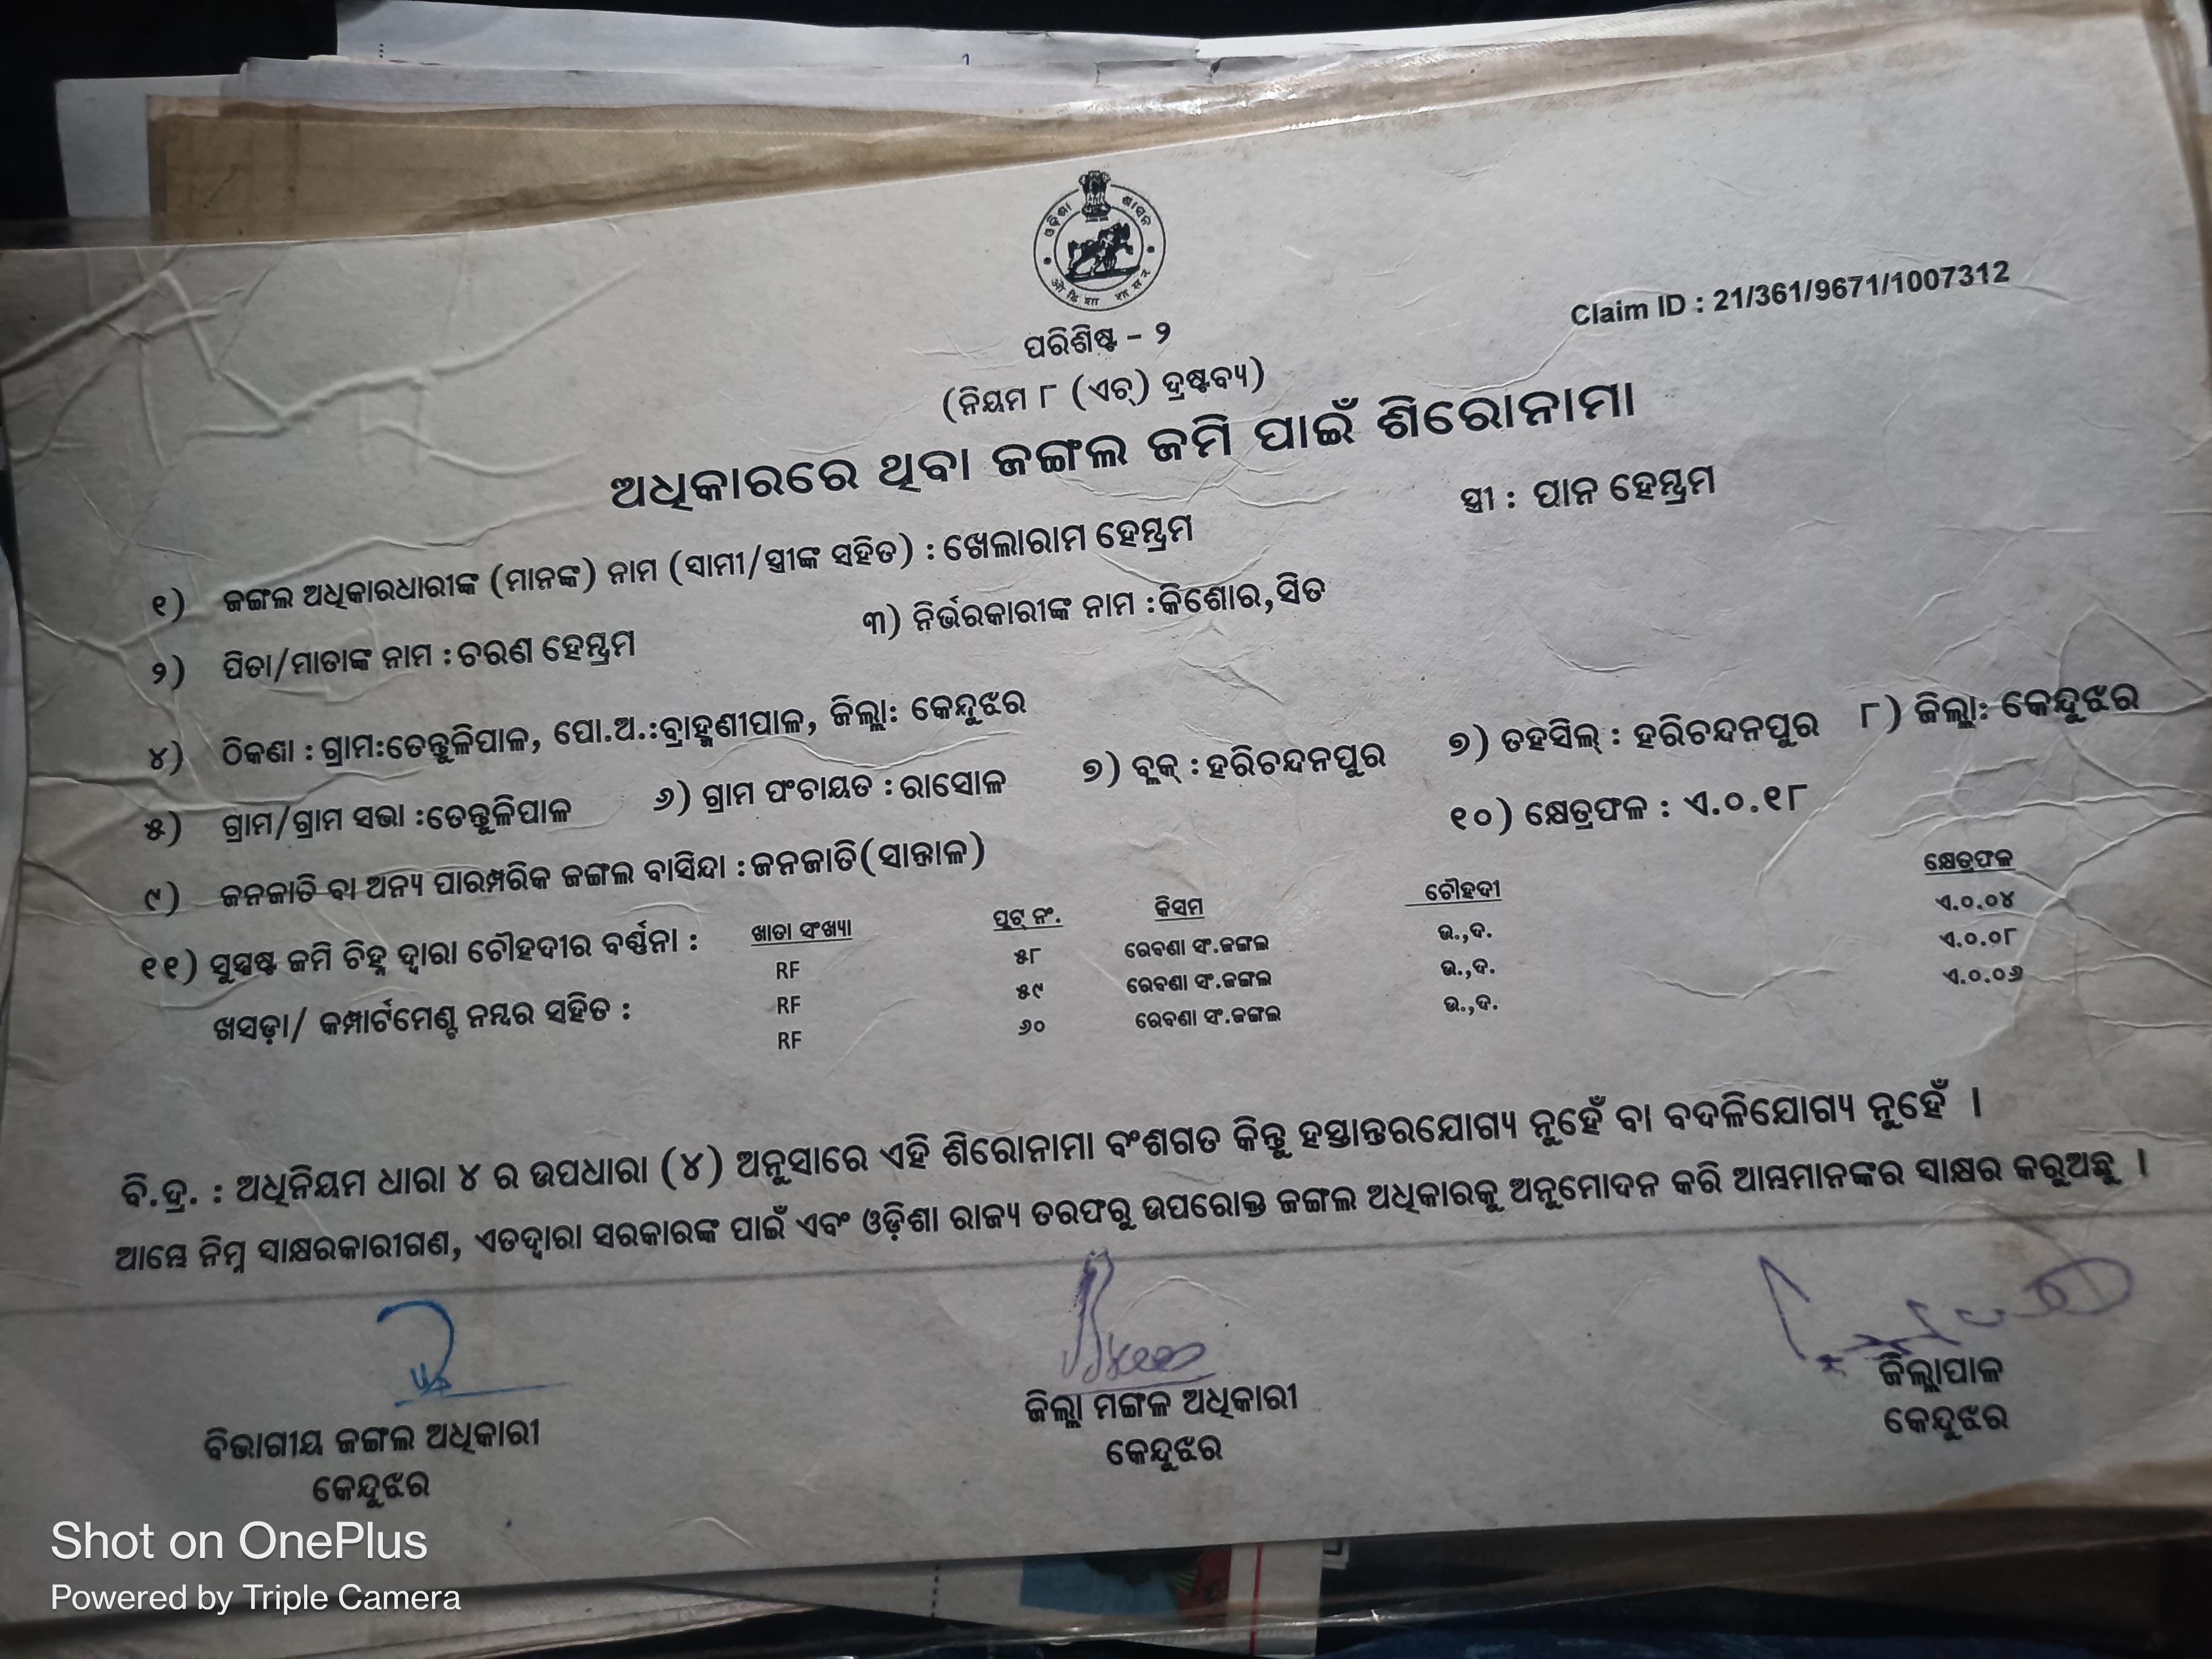 ଓଡ଼ିଶା ଶାସନ
ओडिशा शासन
Claim ID : 21/361/9671/1007312
ପରିଶିଷ୍ଟ - ୨
(ନିୟମ ୮ (ଏଚ୍) ଦ୍ରଷ୍ଟବ୍ୟ)
ଅଧିକାରରେ ଥିବା ଜଙ୍ଗଲ ଜମି ପାଇଁ ଶିରୋନାମା
୧) ଜଙ୍ଗଲ ଅଧିକାରଧାରୀଙ୍କ (ମାନଙ୍କ) ନାମ (ସାମୀ/ସ୍ତ୍ରୀଙ୍କ ସହିତ) : ଖେଲାରାମ ହେମ୍ବ୍ରମ ସ୍ତ୍ରୀ : ପାନ ହେମ୍ବ୍ରମ
୨) ପିତା/ମାତାଙ୍କ ନାମ : ଚରଣ ହେମ୍ବ୍ରମ ୩) ନିର୍ଭରକାରୀଙ୍କ ନାମ : କିଶୋର,ସିତ
୪) ଠିକଣା : ଗ୍ରାମ:ତେନ୍ତୁଳିପାଳ, ପୋ.ଅ.:ବ୍ରାହ୍ମଣୀପାଳ, ଜିଲ୍ଲା: କେନ୍ଦୁଝର
୫) ଗ୍ରାମ/ଗ୍ରାମ ସଭା :ତେନ୍ତୁଳିପାଳ ୬) ଗ୍ରାମ ପଂଚାୟତ : ରାସୋଳ ୭) ବ୍ଲକ୍ : ହରିଚନ୍ଦନପୁର ୭) ତହସିଲ୍ : ହରିଚନ୍ଦନପୁର ୮) ଜିଲ୍ଲା: କେନ୍ଦୁଝର
୯) ଜନଜାତି ବା ଅନ୍ୟ ପାରମ୍ପରିକ ଜଙ୍ଗଲ ବାସିନ୍ଦା : ଜନଜାତି(ସାନ୍ତାଳ) ୧୦) କ୍ଷେତ୍ରଫଳ : ଏ.୦.୧୮
୧୧) ସୁସ୍ପଷ୍ଟ ଜମି ଚିହ୍ନ ଦ୍ୱାରା ଚୌହଦୀର ବର୍ଣ୍ଣନା :
ଖସଡ଼ା/ କମ୍ପାର୍ଟମେଣ୍ଟ ନମ୍ବର ସହିତ :
ଖାତା ସଂଖ୍ୟା ପ୍ଲଟ୍ ନଂ. କିସମ ଚୌହଦୀ କ୍ଷେତ୍ରଫଳ
RF ୫୮ ରେବଣା ସଂ.ଜଙ୍ଗଲ ଉ.,ଦ. ଏ.୦.୦୪
RF ୫୯ ରେବଣା ସଂ.ଜଙ୍ଗଲ ଉ.,ଦ. ଏ.୦.୦୮
RF ୬୦ ରେବଣା ସଂ.ଜଙ୍ଗଲ ଉ.,ଦ. ଏ.୦.୦୬
ବି.ଦ୍ର. : ଅଧିନିୟମ ଧାରା ୪ ର ଉପଧାରା (୪) ଅନୁସାରେ ଏହି ଶିରୋନାମା ବଂଶଗତ କିନ୍ତୁ ହସ୍ତାନ୍ତରଯୋଗ୍ୟ ନୁହେଁ ବା ବଦଳିଯୋଗ୍ୟ ନୁହେଁ ।
ଆମ୍ଭେ ନିମ୍ନ ସ୍ୱାକ୍ଷରକାରୀଗଣ, ଏତଦ୍ୱାରା ସରକାରଙ୍କ ପାଇଁ ଏବଂ ଓଡ଼ିଶା ରାଜ୍ୟ ତରଫରୁ ଉପରୋକ୍ତ ଜଙ୍ଗଲ ଅଧିକାରକୁ ଅନୁମୋଦନ କରି ଆମ୍ଭମାନଙ୍କର ସ୍ୱାକ୍ଷର କରୁଅଛୁ ।
ବିଭାଗୀୟ ଜଙ୍ଗଲ ଅଧିକାରୀ
କେନ୍ଦୁଝର
ଜିଲ୍ଲା ମଙ୍ଗଳ ଅଧିକାରୀ
କେନ୍ଦୁଝର
ଜିଲ୍ଲାପାଳ
କେନ୍ଦୁଝର
Shot on OnePlus
Powered by Triple Camera